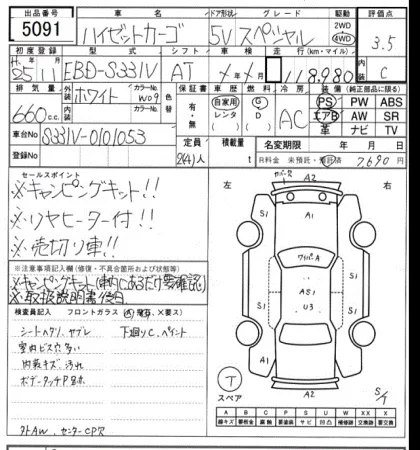 出品番号 車名 ドア形状 グレード 駆動 評価点
5091 ハイゼットカーゴ 5V スペシャル 2WD 4WD 3.5
初度登録 型式 シフト 車検 走行(km・マイル) 内装
H. 25 11 EBD-S331V AT 年 月 118,980 C
排気量 外装 ホワイト カラーNo. W09 色替 保証書 車歴 燃料 冷房 装備(純正部品に限る)
660cc 内装 カラーNo. 有・無 自家用 レンタ G D AC PS PW ABS
エアB AW SR
革 ナビ TV
車台No S331V-0101053
登録No 定員 2(4)人 積載量 t 名変期限 年 月 日
R料金 未預託・預託済 7,690
セールスポイント
※キャンピングキット!!
※リヤヒーター付!!
※売切り車!!
※注意事項記入欄(修復・不具合箇所および状態等)
※キャンピングキット(車内にあるだけ要確認)
※取扱説明書後日
検査員記入 フロントガラス
シートヘタリ、ヤブレ 下廻りC、ペイント
室内ビス穴多い
内装キズ、汚れ
ボデータッチP跡
外AW、センターCP穴
左 右
A2
A1
S1 S1
ワイパA
AS1
U3
S1 S1
A1 A1
A2
T
スペア
S/T
A B C P S U W X XX
線キズ 要板金 腐蝕 要塗装 サビ 凹凸 補修 要交換 交換済